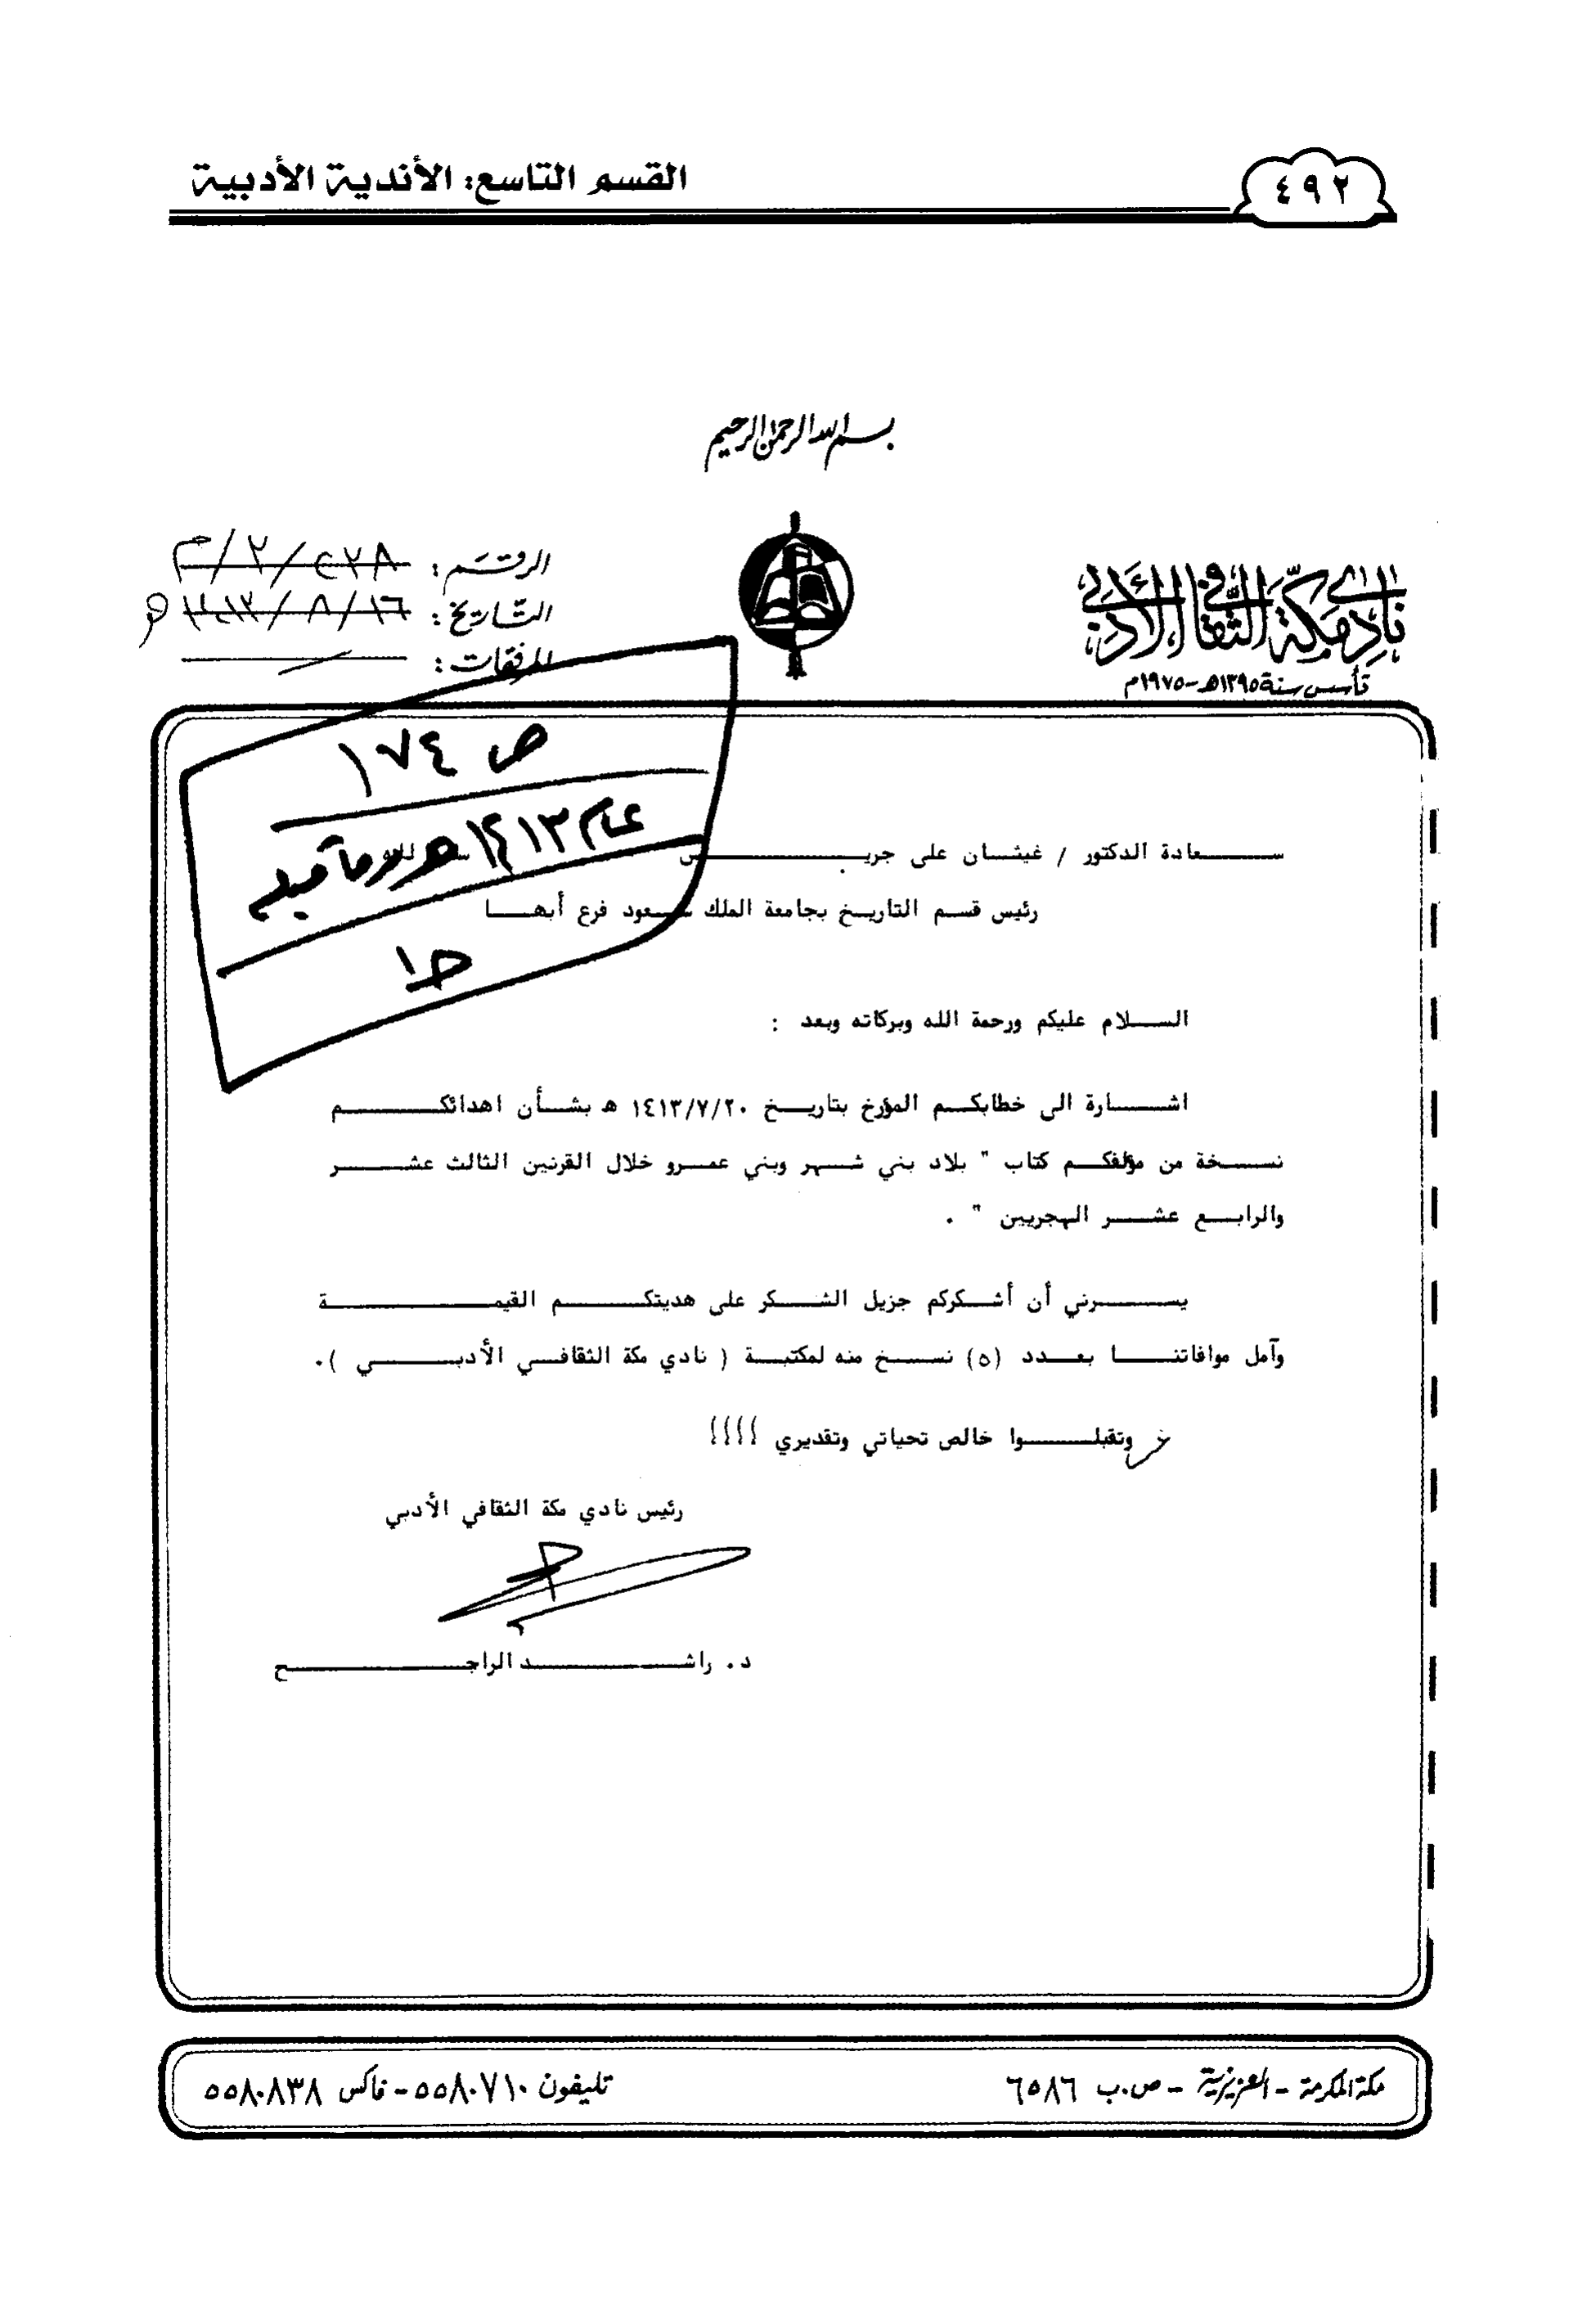 القسم التاسع: الأندية الأدبية
٤٩٢
بسم الله الرحمن الرحيم
نادي مكة الثقافي الأدبي
تأسس سنة ١٣٩٥هـ - ١٩٧٥م
الرقم :
التاريخ : ١٤١٣/٨/١٦ هـ
المرفقات :
ص ١٧٤
عام ١٤١٣هـ وما قبله
ج١
سعادة الدكتور / غيثان على جريس
رئيس قسم التاريخ بجامعة الملك سعود فرع أبها
السلام عليكم ورحمة الله وبركاته وبعد :
اشارة الى خطابكم المؤرخ بتاريخ ١٤١٣/٧/٢٠ هـ بشأن اهدائكم
نسخة من مؤلفكم كتاب " بلاد بني شهر وبني عمرو خلال القرنين الثالث عشر
والرابع عشر الهجريين " .
يسرني أن أشكركم جزيل الشكر على هديتكم القيمة
وآمل موافاتنا بعدد (٥) نسخ منه لمكتبة ( نادي مكة الثقافي الأدبي ).
وتقبلوا خالص تحياتي وتقديري
رئيس نادي مكة الثقافي الأدبي
د. راشد الراجح
مكة المكرمة - العزيزية - ص.ب ٦٥٨٦
تليفون ٥٥٨٠٧١٠ - فاكس ٥٥٨٠٨٣٨